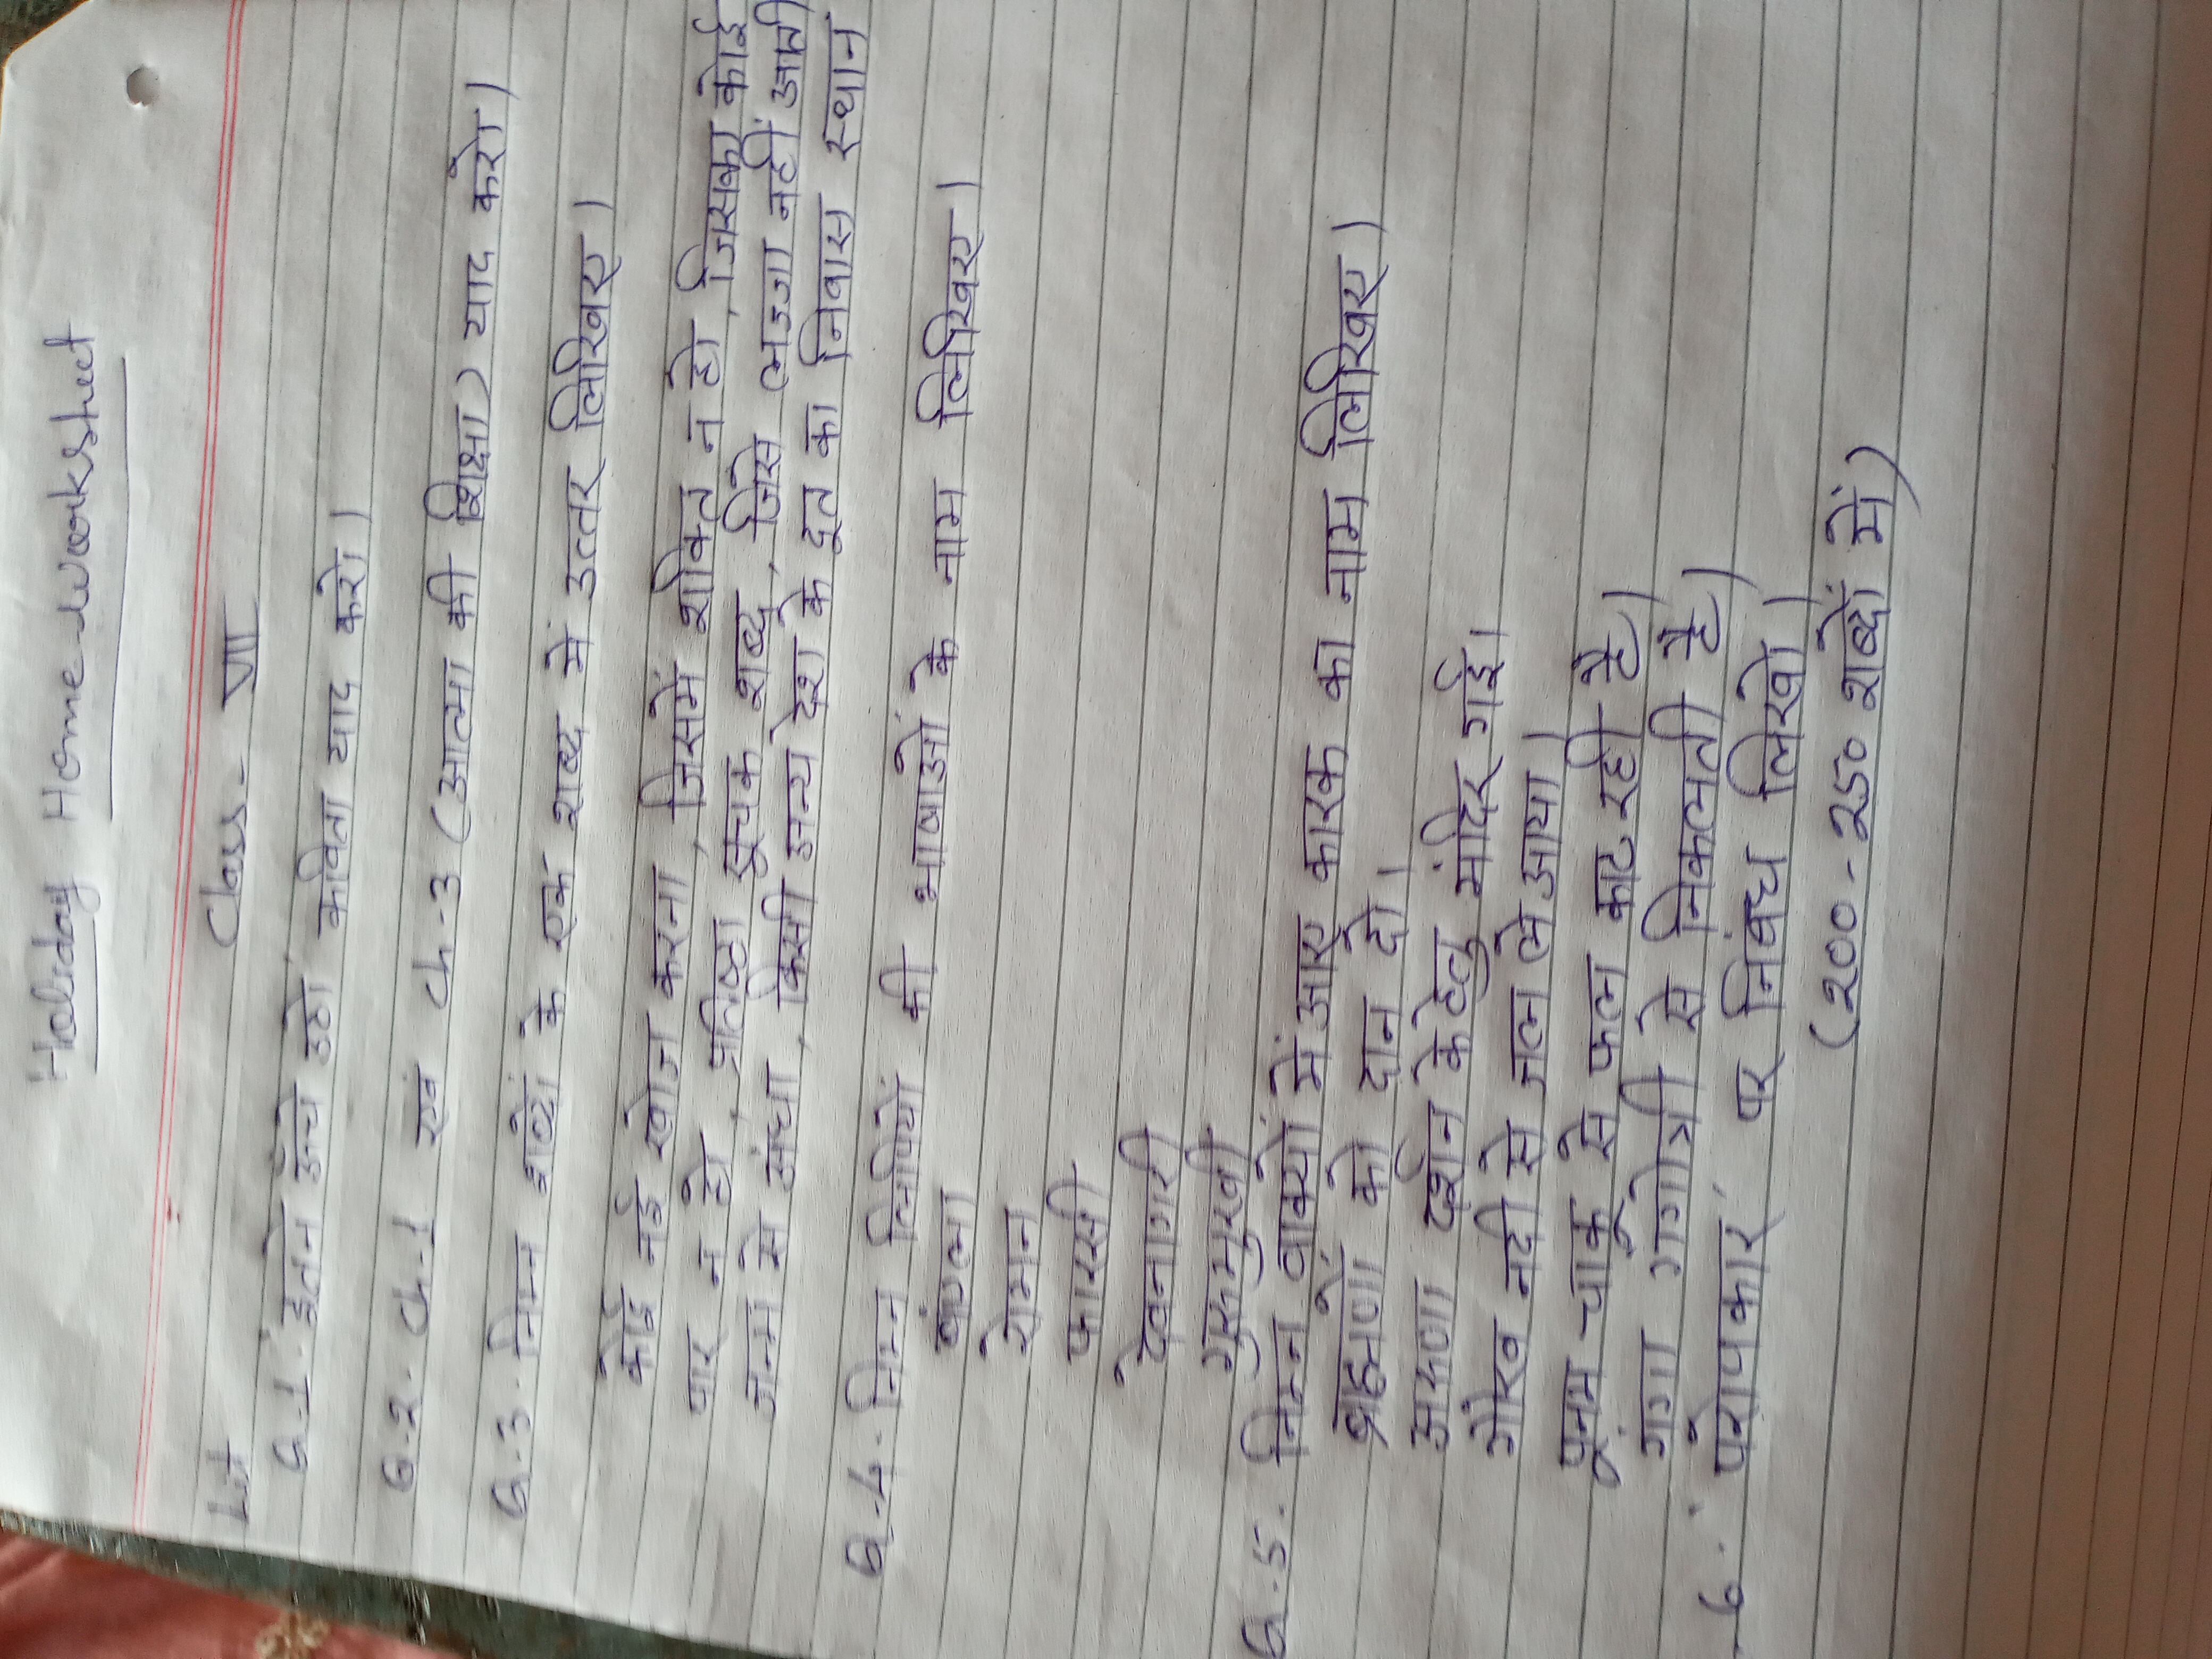 Holiday Home-Worksheet
Class - VII
Q.1. 'इतने ऊँचे उठो' कविता याद करो।
Q.2. Ch.1 एवं Ch.3 (आत्मा की शिक्षा) याद करो।
Q.3. निम्न शब्दों के एक शब्द में उत्तर लिखिए।
कोई नई खोज करना, जिसमें शक्ति न हो, जिसका कोई
पार न हो, प्रतिष्ठा सूचक शब्द, जिसे लज्जा नहीं आती
जन्म से अंधा, किसी अन्य देश के दूत का निवास स्थान
Q.4. निम्न लिपियों की भाषाओं के नाम लिखिए।
बंग्ला
रोमन
फारसी
देवनागरी
गुरुमुखी
Q.5. निम्न वाक्यों में आए कारक का नाम लिखिए।
ब्राहमणों को दान दो।
अरुणा दर्शन के हेतु मंदिर गई।
गौरव नदी से जल ले आया।
पूनम चाकू से फल काट रही है।
गंगा गंगोत्री से निकलती है।
6. 'परोपकार' पर निबंध लिखो।
(200-250 शब्दों में)